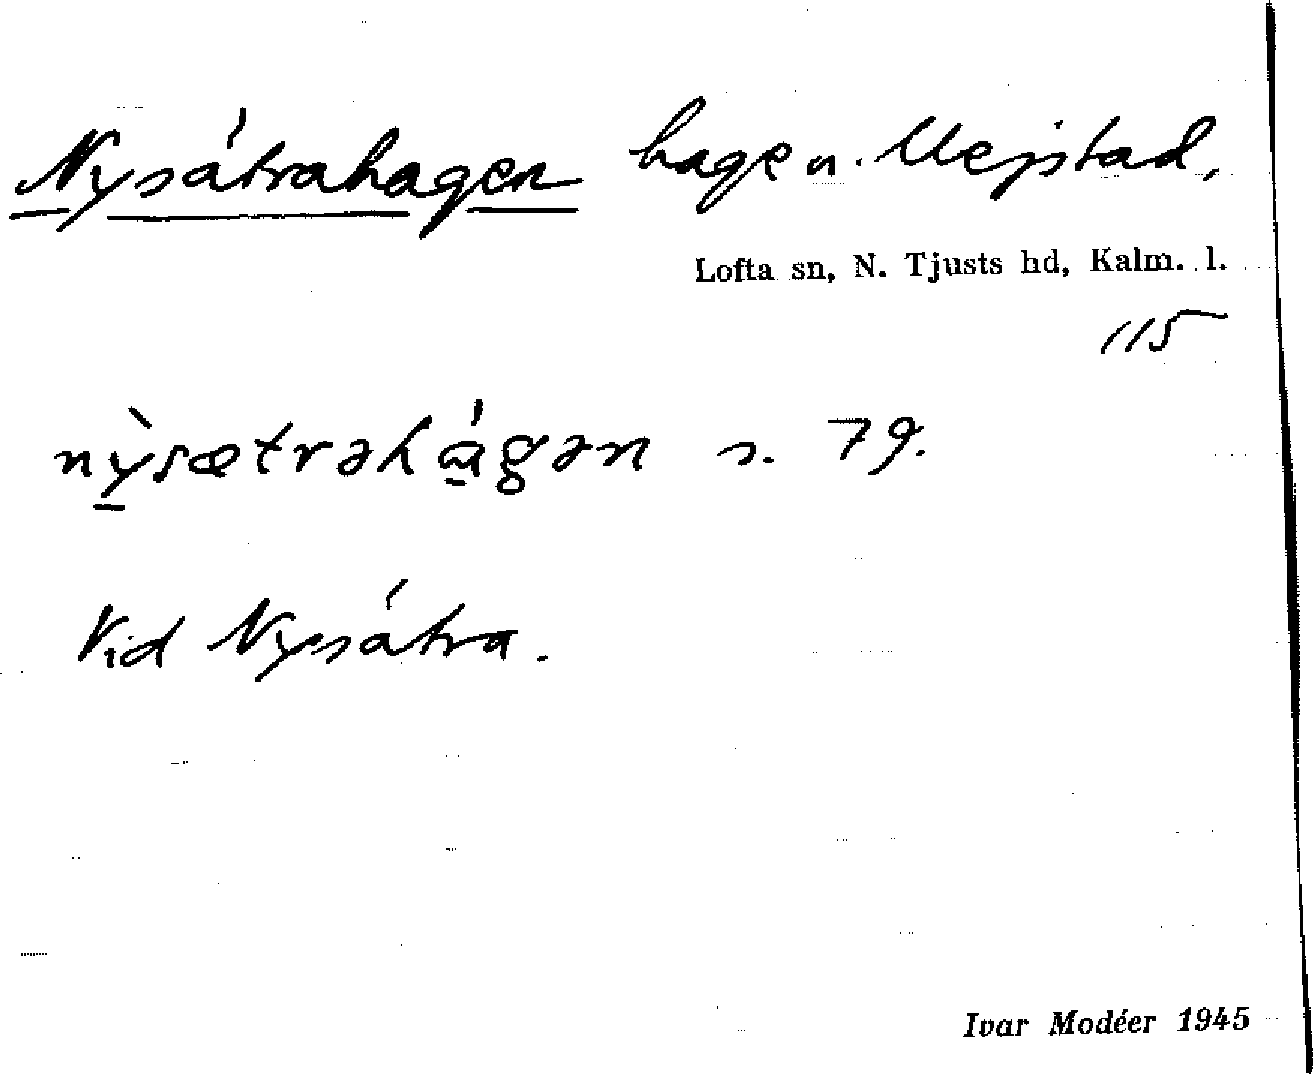 Nysátrahagen hage n. Mejstad,
Lofta sn, N. Tjusts hd, Kalm. l.
115
nỳsætrəhágən s. 79.
Vid Nysátra.
Ivar Modéer 1945